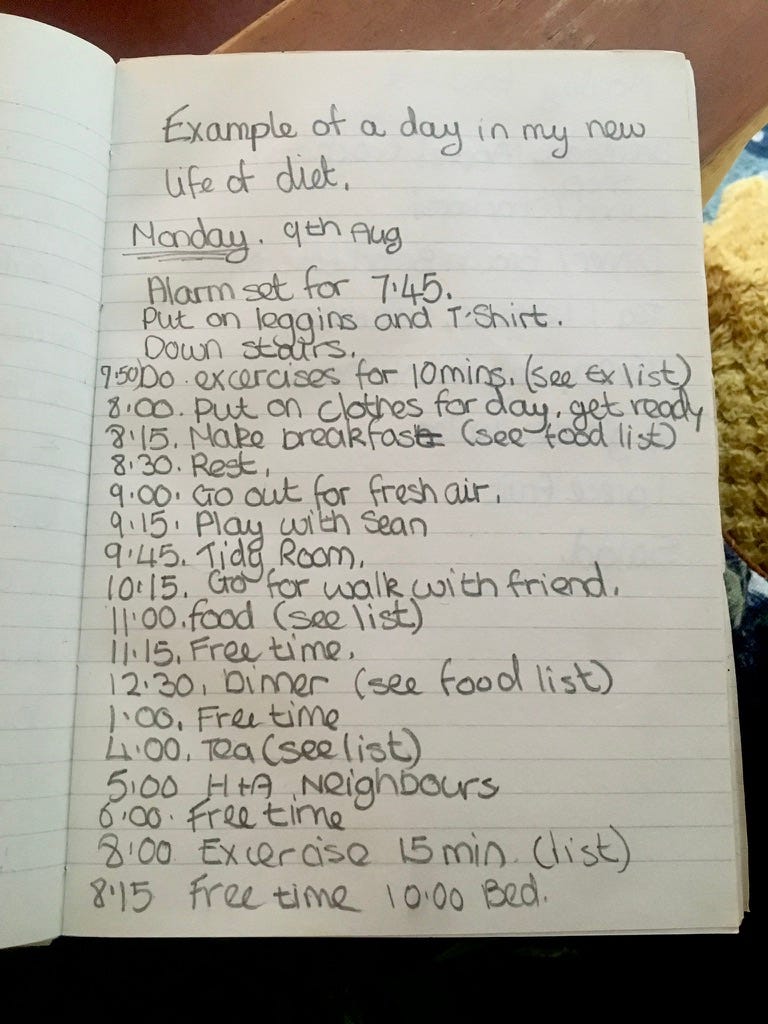 Example of a day in my new
life of diet.
Monday. 9th Aug
Alarm set for 7.45.
Put on leggins and T-Shirt.
Down stairs.
7.50)Do excercises for 10mins. (see Ex list)
8.00. Put on clothes for day, get ready
8.15. Make breakfast (see food list)
8.30. Rest.
9.00. Go out for fresh air.
9.15. Play with Sean
9.45. Tidy Room.
10.15. Go for walk with friend.
11.00. food (see list)
11.15. Free time.
12.30. Dinner (see food list)
1.00. Free time
4.00. Tea (see list)
5.00 H+A Neighbours
6.00. Free time
8.00 Excercise 15 min. (list)
8.15 Free time 10.00 Bed.